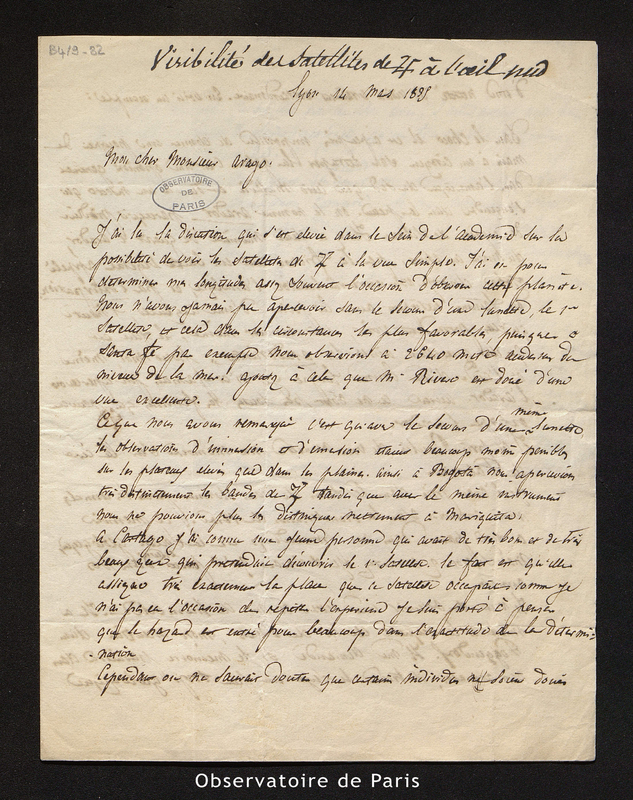 B4/9-82
Visibilité des Satellites de ♃ à l'œil nud
Lyon 14 Mars 1835
Mon cher Monsieur Arago.
OBSERVATOIRE
DE
PARIS
J'ai lu la discution qui s'est elevée dans le sein de l'academie sur la
possibilité de voir les satellites de ♃ à la vue simple. J'ai eu pour
determiner mes longitudes assez souvent l'occasion d'observer cette planète.
Nous n'avons jamais pu apercevoir sans le secours d'une lunette, le 1er
Satellite, et cela dans les circonstances les plus favorables, puisque à
Santa fé par exemple nous observions à 2640 metres audessus du
niveau de la mer. ajoutez à cela que Mr Rivero est doué d'une
vue excellente.
Ce que nous avons remarqué c'est qu'avec le secours d'une même lunette
les observations d'immersion et d'emersion etaient beaucoup moins penibles
sur les plateaux elevés que dans les plaines. ainsi à Bogotá nous apercevions
très distinctement les bandes de ♃ tandis que avec le même instrument
nous ne pouvions plus les distinguer nettement à Mariquita.
a Cartago j'ai connu une jeune personne qui avait de très bons et de très
beaux yeux, qui pretendait découvrir le 1er Satellite. le fait est qu'elle
assigna très exactement la place que ce satellite occupait, comme je
n'ai pas eu l'occasion de repeter l'experience je suis porté à penser
que le hazard est entré pour beaucoup dans l'exactitude de la détermi-
-nation
Cependant on ne saurait douter que certains individus ne soient doués
Observatoire de Paris